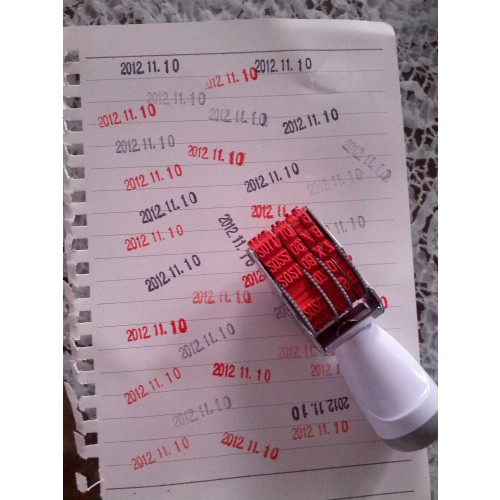 2012.11.10
2012.11.10
2012.11.10
2012.11.10
2012.11.10
2012.11.10
2012.11.10
2012.11.10
2012.11.10
2012.11.10
2012.11.10
2012.11.10
2012.11.10
2012.11.10
2012.11.10
2012.11.10
2012.11.10
2012.11.10
2012.11.10
2012.11.10
2012.11.10
2012.11.10
2012.11.10
2012.11.10
2012.11.10
2012.11.10
2012.11.10
2012.11.10
2012.11.10
2012.11.10